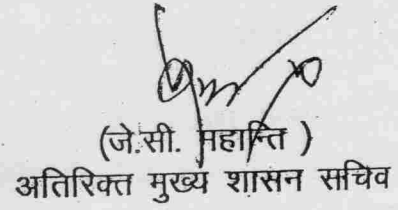 (जे.सी. महान्ति )
अतिरिक्त मुख्य शासन सचिव